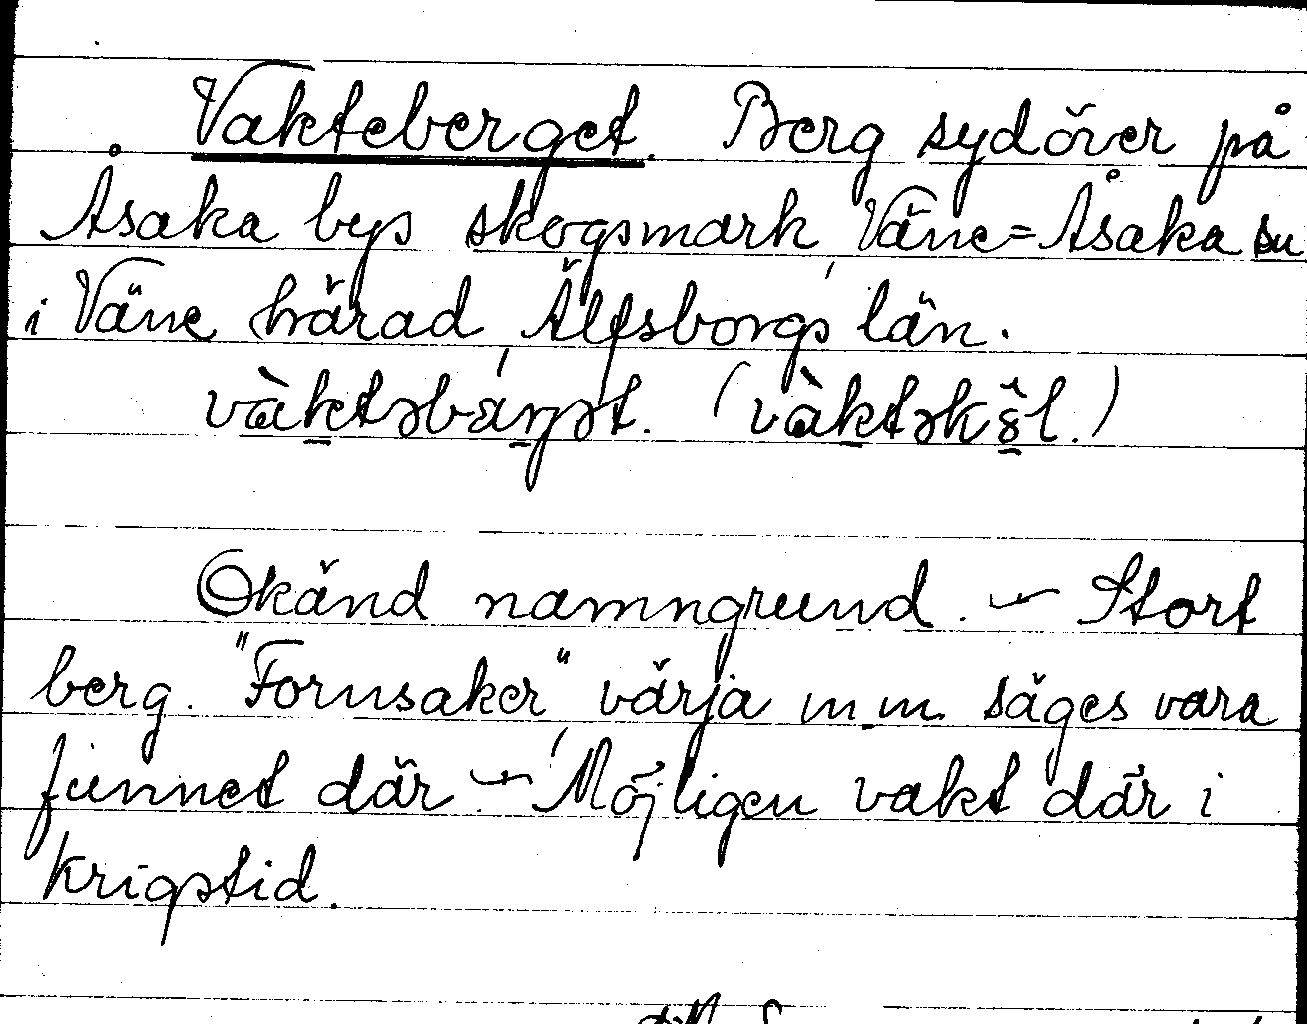 Vakteberget. Berg sydöver på
Åsaka bys skogsmark, Väne=Åsaka sn
i Väne härad, Älfsborgs län.
vàktəbárjət. (vàktəkŏ̀l.)
Okänd namngrund. – Stort
berg. "Fornsaker", värja m.m. säges vara
funnet där. – Möjligen vakt där i
krigstid.